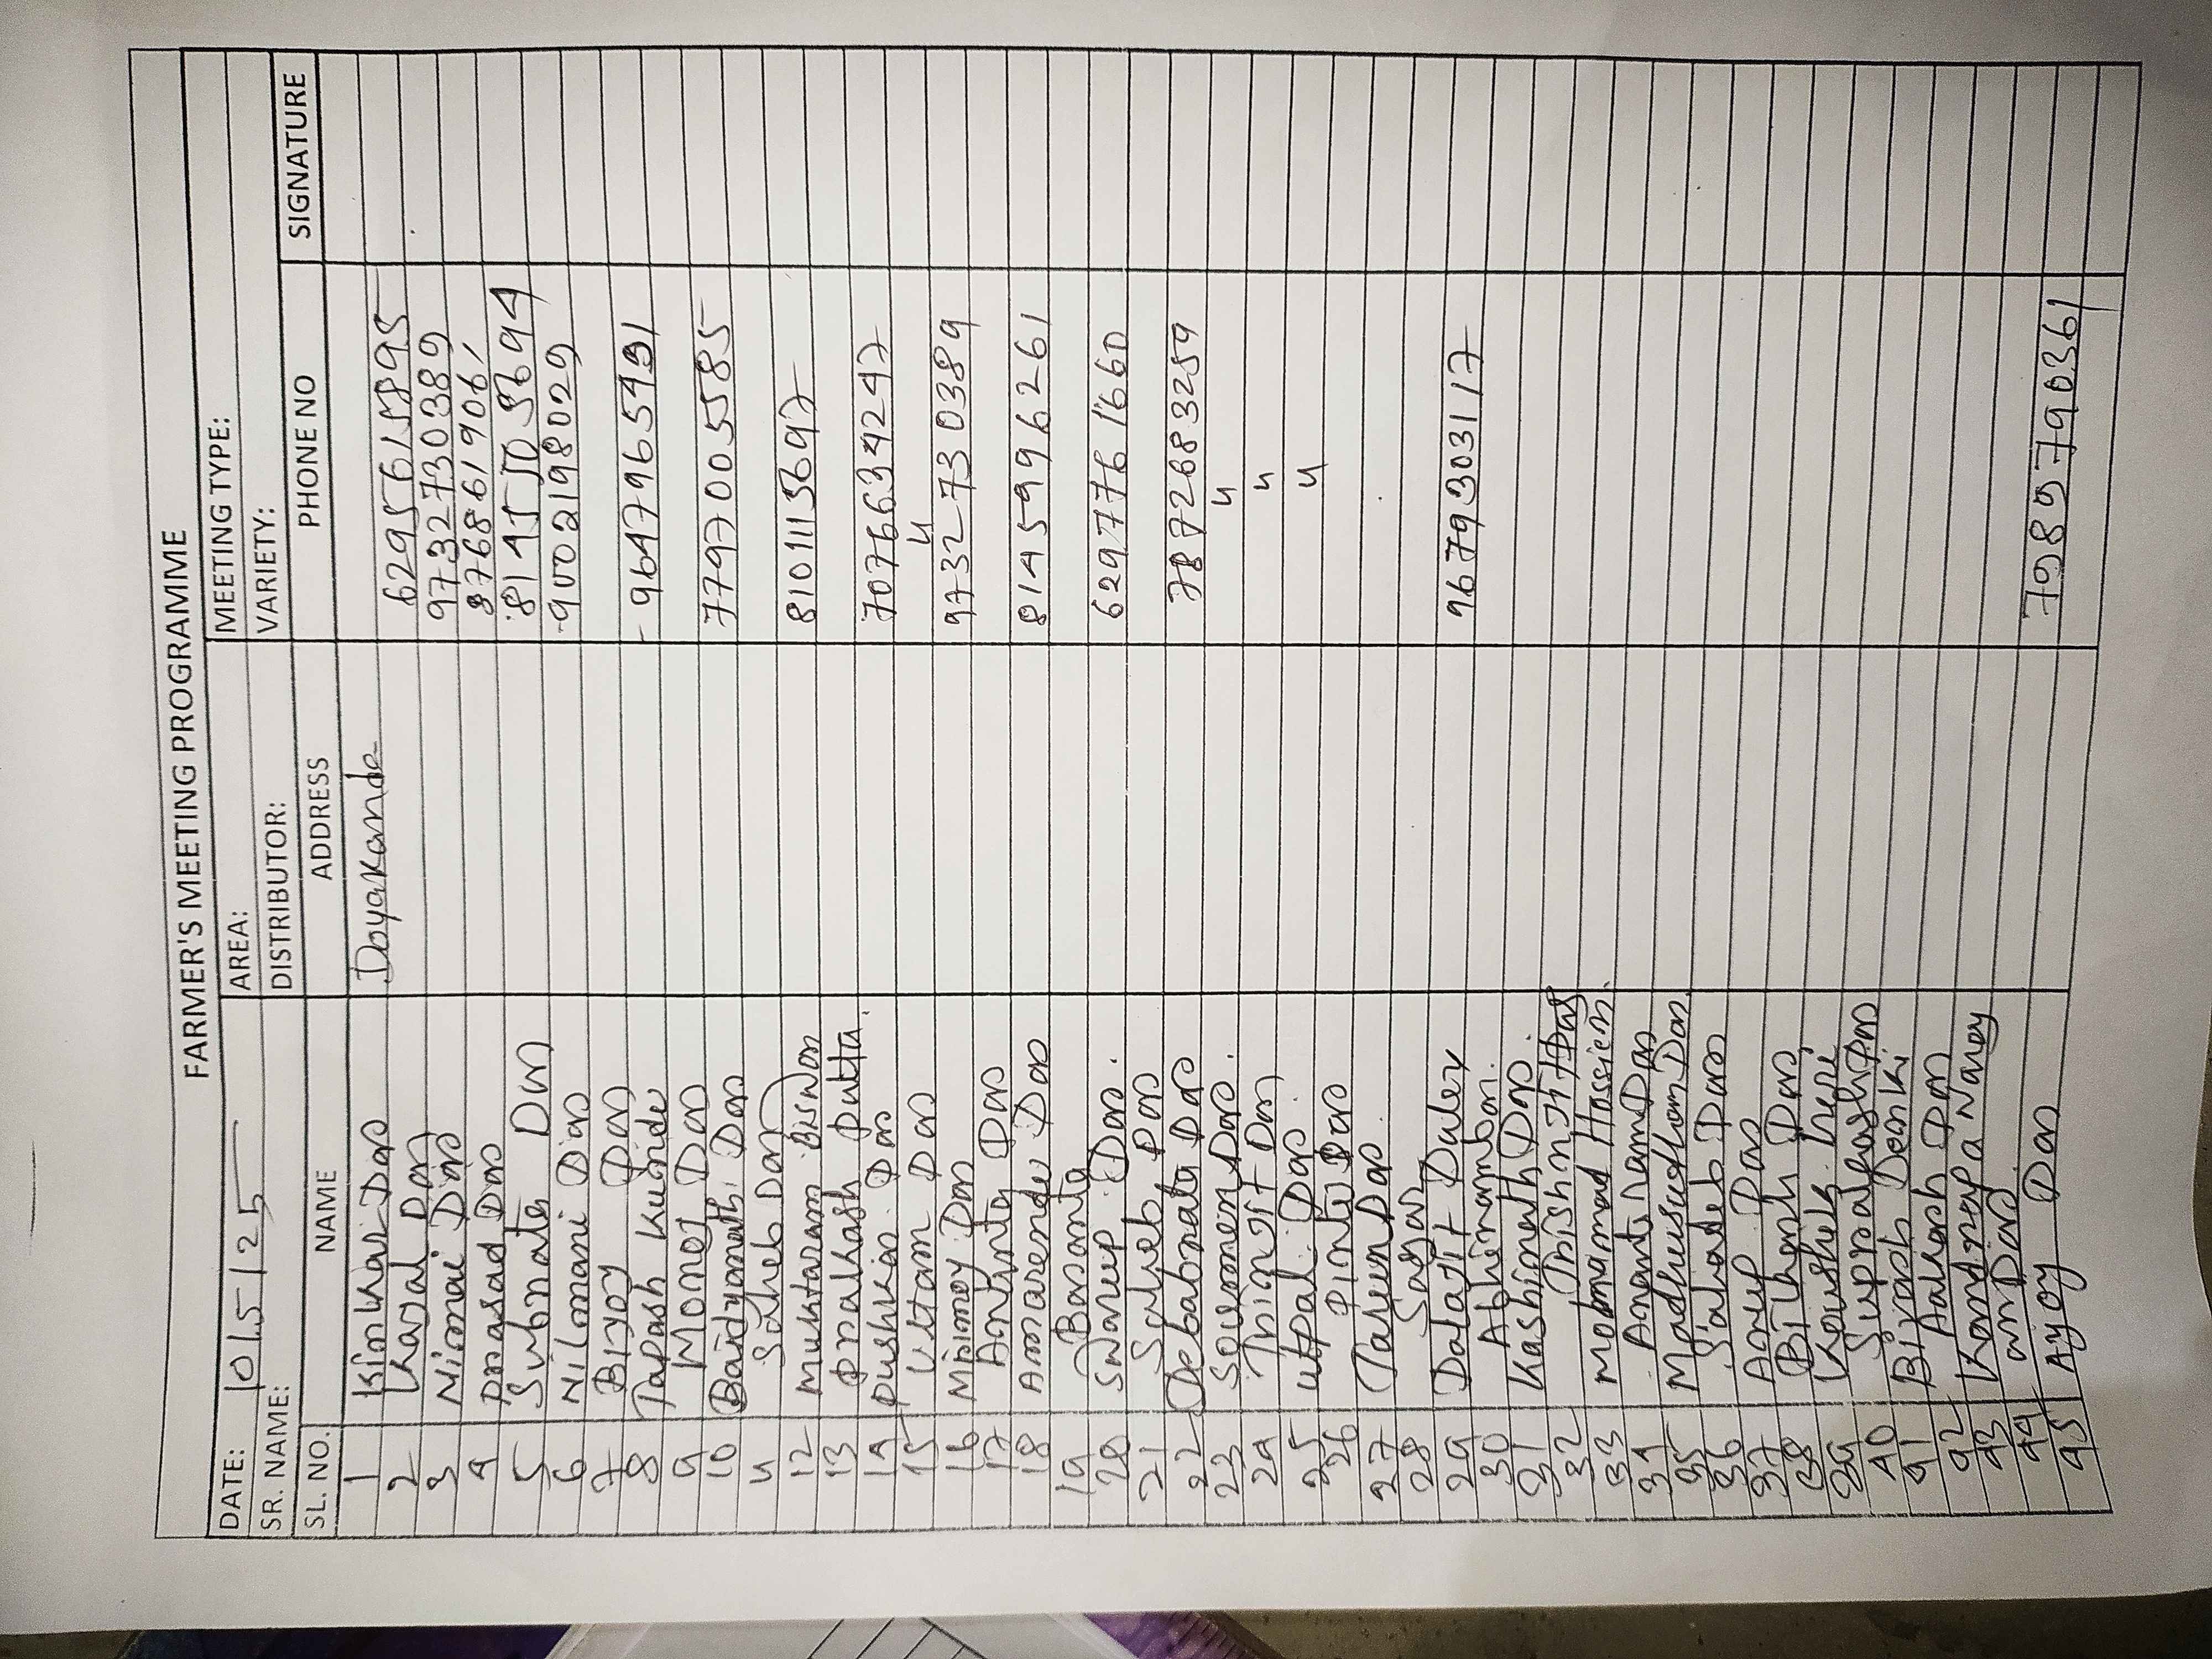 FARMER'S MEETING PROGRAMME
DATE: 10/5/25 AREA: MEETING TYPE:
SR. NAME: DISTRIBUTOR: VARIETY:
SL. NO. NAME ADDRESS PHONE NO SIGNATURE
1 Kinkhar Das Doyakanda
2 Kajal Das 6295615895
3 Nimai Das 9732730389
4 prasad Das 876861906
5 Subrata Das
6 Nilmani Das 9002198029
7 Bijoy Das
8 Tapash Kundu 9647965491
9 Monoj Das
10 Baidyanath Das 7797005585
11 Saheb Das
12 Muktaram Biswas 8101113697
13 prakhash Dutta
14 Pushkar Das 7076634247
15 Uttam Das "
16 Mrinmoy Das 9732730389
17 Das
18 Amarendu Das 8145996261
19 Basanta
20 Swarup Das. 6297761660
21 Saheb Das
22 Debabrata Das 7872683259
23 Soumen Das. "
24 Das "
25 Utpal Das. "
26 Pintu Das
27 Tarun Das.
28 Sagar
29 9679303117
30
31 Kashinath Das.
32 Das
33 Mohammad Hossien.
34 Das
35 Das.
36 Sahadeb Das
37 Anup Das
38 Bikash Das
39
40 Das
41
42 Aakash Das
43
44 Das
45 Ajoy Das 7989790361